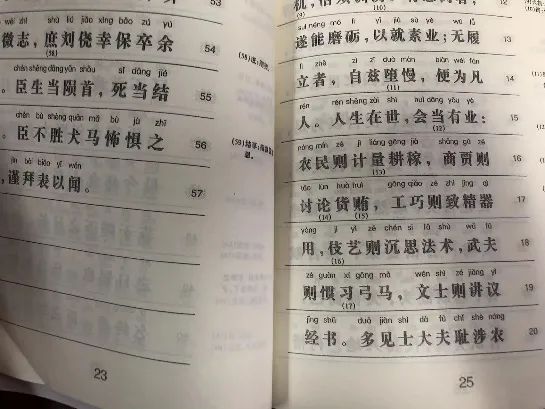 shù liú jiǎo xìng bǎo zú yú
微志，庶刘侥幸保卒余 54
(58)
chén shēng dāng yǔn shǒu sǐ dāng jié
。臣生当陨首，死当结 55
chén bù shèng quǎn mǎ bù jù zhī
。臣不胜犬马怖惧之 56
jǐn bài biǎo yǐ wén
，谨拜表以闻。 57
23
suì néng mó lì yǐ jiù sù yè wú lǚ
遂能磨砺，以就素业；无履 13
lì zhě zì zī duò màn biàn wéi fán
立者，自兹堕慢，便为凡 14
(11)
rén rén shēng zài shì huì dāng yǒu yè
人。人生在世，会当有业： 15
(12)
nóng mín zé jì liáng gēng jià shāng gǔ zé
农民则计量耕稼，商贾则 16
(13)
tǎo lùn huò huì gōng qiǎo zé zhì jīng qì
讨论货贿，工巧则致精器 17
(14) (15)
yòng jì yì zé chén sī fǎ shù wǔ fū
用，伎艺则沉思法术，武夫 18
(16)
zé guàn xí gōng mǎ wén shì zé jiǎng yì
则惯习弓马，文士则讲议 19
(17)
jīng shū duō jiàn shì dà fū chǐ shè nóng
经书。多见士大夫耻涉农 20
25